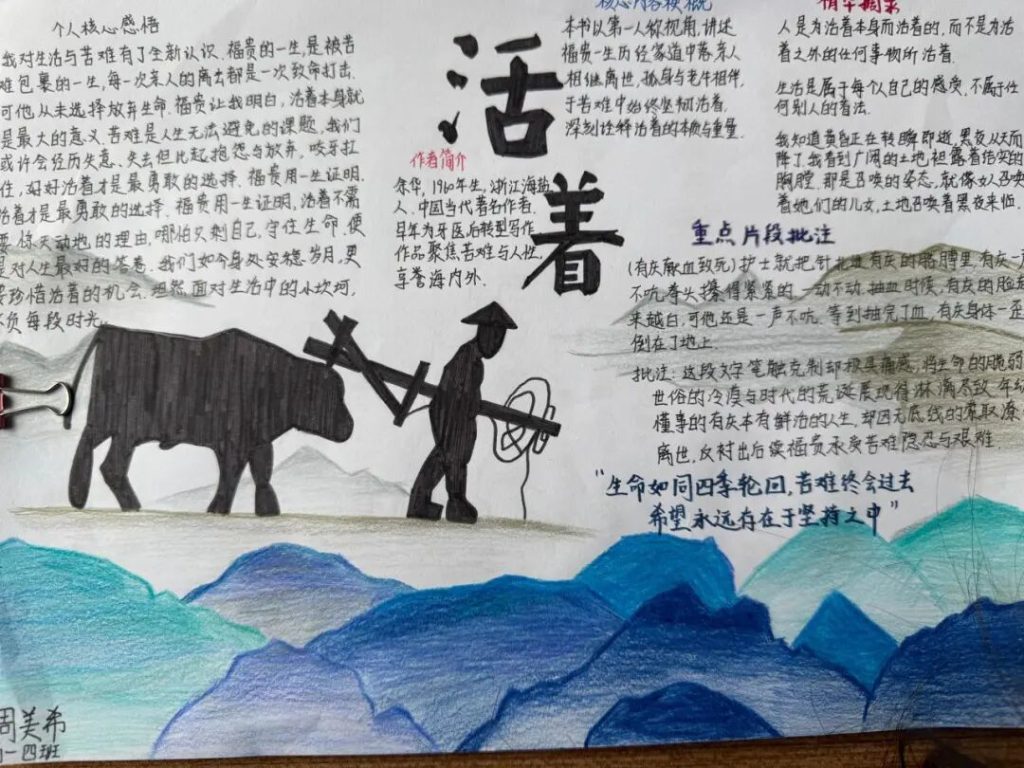 个人核心感悟
我对生活与苦难有了全新认识。福贵的一生,是被苦
难包裹的一生,每一次亲人的离去都是一次致命打击.
可他从未选择放弃生命.福贵让我明白,活着本身就
是最大的意义.苦难是人生无法避免的课题,我们
或许会经历失意、失去但比起抱怨与放弃,咬牙扛
住,好好活着才是最勇敢的选择.福贵用一生证明,
活着才是最勇敢的选择.福贵用一生证明,活着不需
要惊天动地的理由,哪怕只剩自己,守住生命,便
是对人生最好的答卷.我们如今身处安稳岁月,更
要珍惜活着的机会.坦然面对生活中的小坎坷,
不负每段时光
活着
作者简介
余华,1960年生,浙江海盐
人.中国当代著名作者.
早年为牙医后转型写作
作品聚焦苦难与人性,
享誉海内外.
核心内容梗概
本书以第一人称视角,讲述
福贵一生历经家道中落亲人
相继离世,孤身与老牛相伴,
于苦难中始终坚韧活着,
深刻诠释活着的本质与重量.
精华摘录
人是为活着本身而活着的,而不是为活
着之外的任何事物所活着.
生活是属于每个人自己的感受,不属于任
何别人的看法.
我知道黄昏正在转瞬即逝,黑夜从天而
降了.我看到广阔的土地,袒露着结实的
胸膛,那是召唤的姿态,就像女人召唤
着她们的儿女,土地召唤着黑夜来临.
重点片段批注
(有庆献血致死)护士就把针扎进有庆的胳膊里,有庆一声
不吭,拳头攥得紧紧的,一动不动.抽血时候,有庆的脸越
来越白,可他还是一声不吭.等到抽完了血,有庆身体一歪
倒在了地上.
批注:这段文字笔触克制却极具痛感,将生命的脆弱
世俗的冷漠与时代的荒诞展现得淋漓尽致.年幼
懂事的有庆本有鲜活的人生,却因无底线的索取凄
离世,反衬出后续福贵承受苦难隐忍与艰难.
"生命如同四季轮回,苦难终会过去
希望永远存在于坚持之中"
周美希
一四班